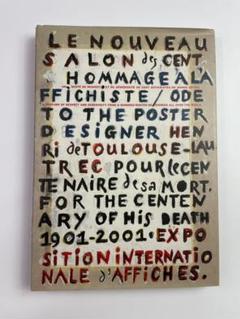 LE NOUVEAU
SALON des CENT
HOMMAGE À L'A
FFICHISTE/ODE
TO THE POSTER
DESIGNER HEN
RI de TOULOUSE-LAU
TREC POUR le CEN
TENAIRE de sa MORT.
FOR THE CENTEN
ARY OF HIS DEATH
1901-2001. EXPO
SITION INTERNATIO
NALE d'AFFICHES.